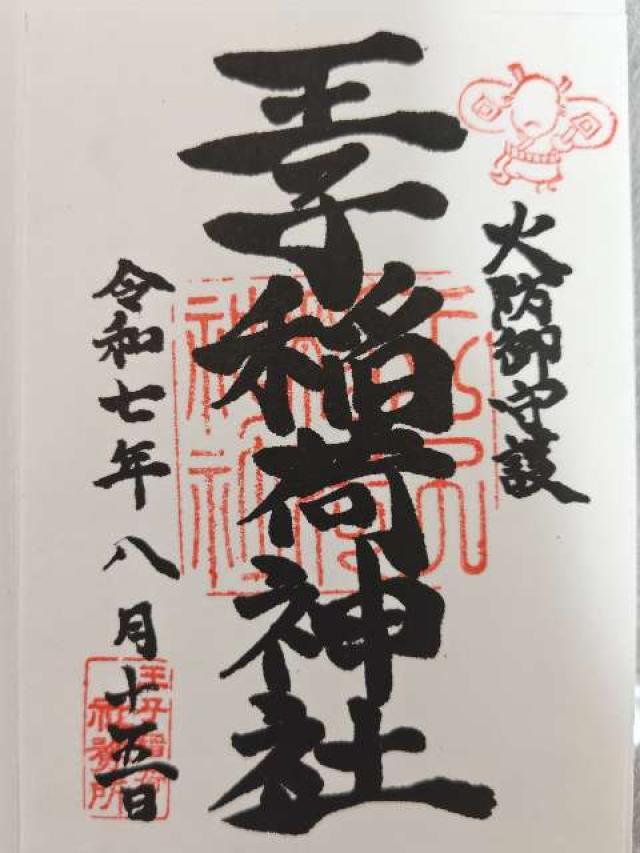 火防御守護
王子稲荷神社
令和七年八月十五日
王子稲荷
社務所